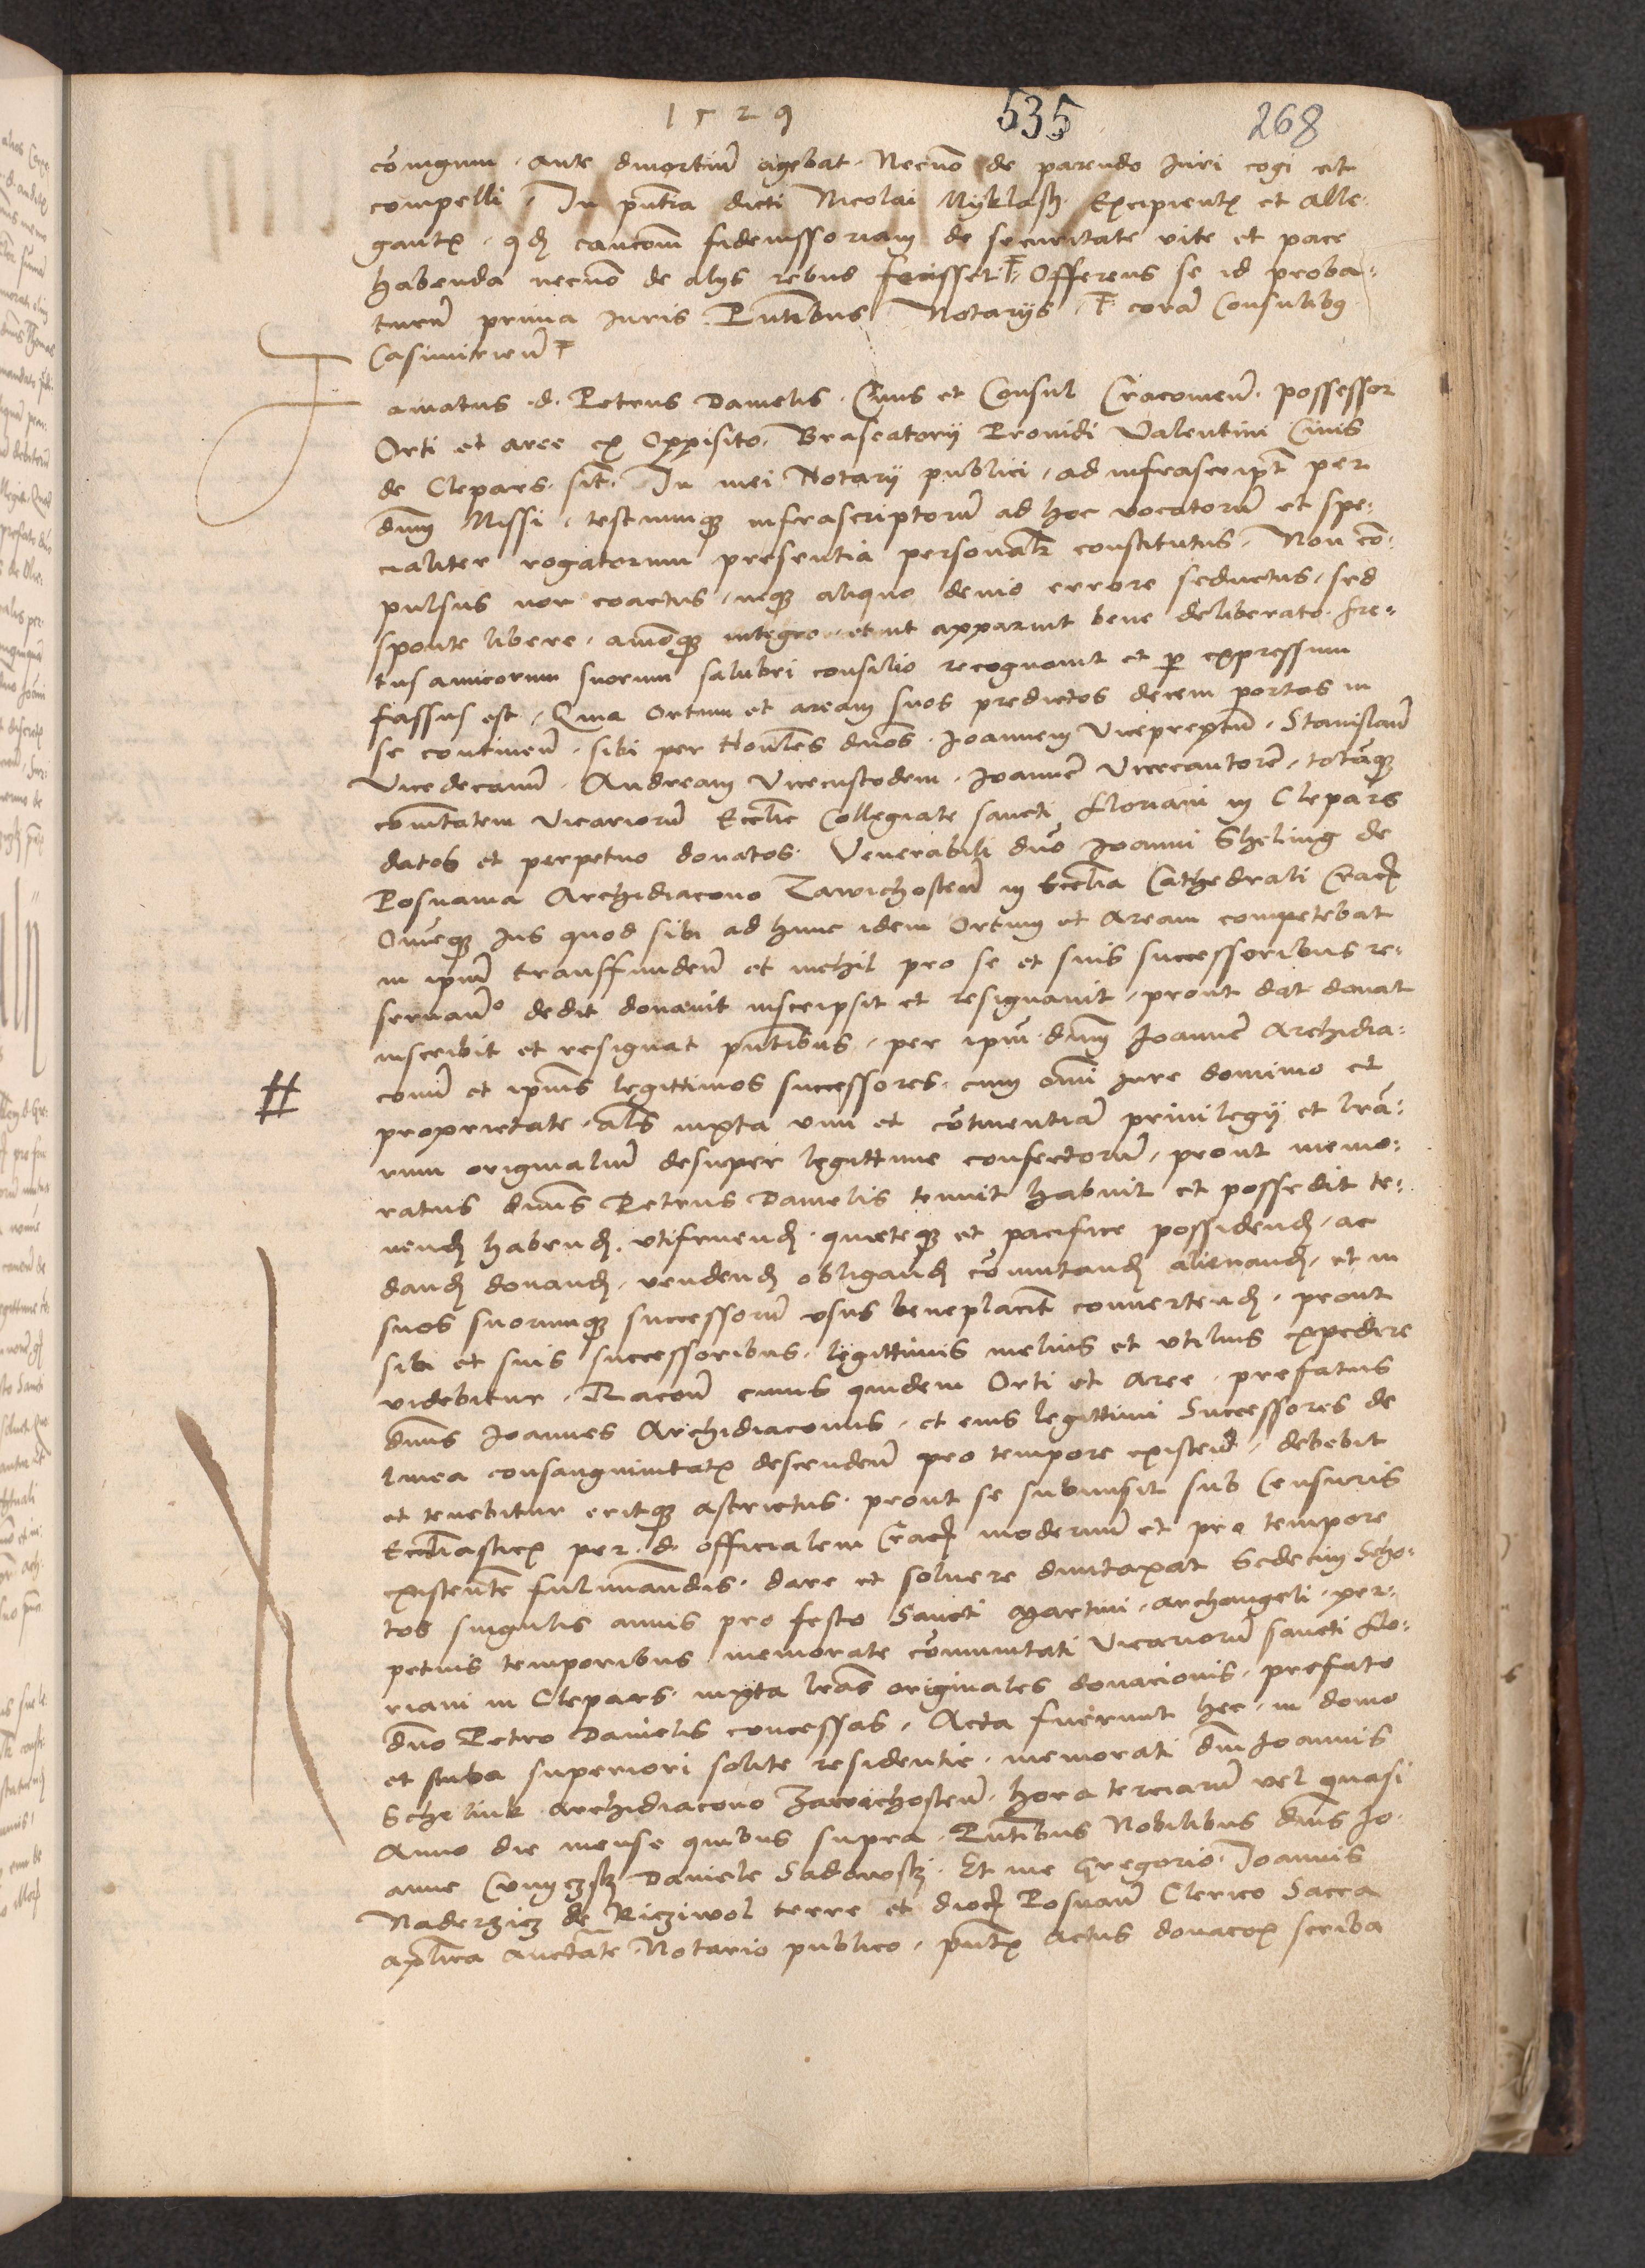 1529 535 268
co͞niugum . ante diuortiu͞ agebat . Necno͞ de parendo Iuri cogi et
compelli . In pn͞tia dicti Nicolai Myklasch . Excipientꝭ et alle-
gantꝭ . qđ caucom͞ fideiussoriam de securitate vite et pace
habenda necno͞ de alijs rebus fecisset . Offerens se id proba-
turu͞ prima Iuris . Pn͞tibus Notarijs . cora͞ Consulibus
Casimirien͞
Famatus . d . Petrus Danielis . Ciuis et Consul Cracouien͞ . possessor
Orti et aree ex Opposito . Braseatorij Prouidi Valentini Ciuis
de Clepars . sit͞ . In mei Notarij publici . ad infrascript͞ per
dn͞m Missi . testiumqꝫ infrascriptoru͞ ad hoc vocatoru͞ et spe-
cialiter rogatorum presentia personalr͞ constitutus . Non co͞-
pulsus nec coactus . neqꝫ aliquo deuio errore seductus . sed
sponte libere . animoqꝫ integro . et ut apparuit bene deliberato . fre-
tus amicorum suorum salubri consilio recognouit et ꝑ expressum
fassus est . Quia Ortum et aream suos predictos decem portas in
se continen͞ . sibi per Hon͞les dn͞os . Joannem Viceprep͞tum . Stanislau͞
Vicedecanu͞ . Andream Vicecustodem . Joanne͞ Vicecantore͞ . tota͞qꝫ
co͞mitatem Vicarioru͞ Eccl͞ie Collegiate sancti Floriani in Clepars
datos et perpetuo donatos . Venerabili dn͞o Joanni Scheling de
Posnania Archidiacono Zawichosten͞ in Eccl͞ia Cathedrali Crac͞
Omneqꝫ Ius quod sibi ad hunc idem Ortum et Aream competebat
in ipsu͞ transffunden͞ et nichil pro se et suis successoribus re-
seruan͞o dedit donauit inscripsit et resignauit . prout dat donat
inscribit et resignat pn͞tibus . per ipm͞ . dn͞m Joanne͞ Archidia-
conu͞ et ipsius legittimos successores . cum om͞i iure dominio et
# proprietate . al͞s iuxta vim et co͞tinentia͞ priuilegij et lr͞a-
rum originaliu͞ desuper legittime confectoru͞ . prout memo-
ratus dn͞us Petrus Danielis tenuit habuit et possedit te-
nendꝭ habendꝭ . vtifruendꝭ . quieteqꝫ et pacifice possidendꝭ . ac
dandꝭ donandꝭ . vendendꝭ obligandꝭ co͞mutandꝭ alienandꝭ . et in
suos suorumqꝫ successoru͞ vsus beneplacit͞ conuertendꝭ . prout
sibi et suis successoribus . legittimis melius et vtilius expedire
videbitur . Racon͞e cuius quidem Orti et Aree . prefatus
dn͞us Joannes Archidiaconus . et eius legittimi Successores de
linea consanguinitatꝭ descenden͞ pro tempore existen͞ . debebit
et tenebitur eritqꝫ astrictus . prout se submisit sub Censuris
Eccl͞iasticꝭ per . d . officialem Crac͞ modernu͞ et pro tempore
existente͞ fulminandis . dare et soluere dumtaxat Sedecim Scho-
tos singulis annis pro festo Sancti Martini . archangeli . per-
petuis temporibus memorate co͞munitati Vicarioru͞ sancti Flo-
riani in Clepars . iuxta lr͞as originales donacionis . prefato
dn͞o Petro Danielis concessas . Acta fuerunt hec . in domo
et stuba superiori solite residentie . memorati dn͞i Joannis
Schelink . Archidiacono Zawichosten͞ . hora terciaru͞ vel quasi
Anno die mense quibus supra . Pn͞tibus Nobilibus dn͞is Jo-
anne Daniele Sadowsky . Et me Gregorio . Joannis
de Ricziwol terre et dioc͞ Posnan͞ Clerico Sacra
apl͞ica auct͞ate Notario publico . pn͞tꝭ actus donac͞oꝭ scriba